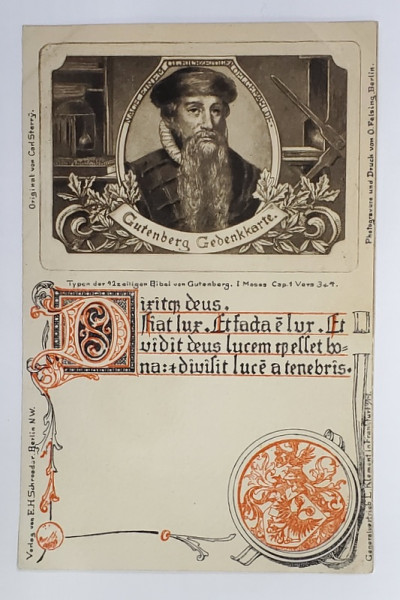 Gutenberg Gedenkkarte.
Original von Carl Sterry.
Photogravure und Druck von O. Felsing, Berlin.
Typen der 42zeiligen Bibel von Gutenberg. 1 Moses Cap. 1 Vers 3 & 4.
Dixitq deus.
Fiat lux. Et facta ē lux. Et
vidit deus lucem ꝙ esset bo-
na: ⁊ divisit lucē a tenebris.
Verlag von E.H. Schroeder, Berlin N.W.
Generalvertrieb L. Klement in Frankfurt